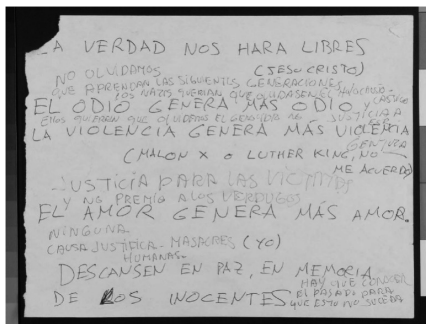 LA VERDAD NOS HARA LIBRES
(JESUCRISTO)
NO OLVIDAMOS
QUE APRENDAN LAS SIGUIENTES GENERACIONES
LOS NAZIS QUERIAN QUE OLVIDASEN EL HOLOCAUSTO-
EL ODIO GENERA MÁS ODIO Y CASTIGO
ELLOS QUIEREN QUE OLVIDEMOS EL GENOCIDIO DE
JUSTICIA A
LA VIOLENCIA GENERA MÁS VIOLENCIA
(MALON X O LUTHER KING, NO
ME ACUERDO)
JUSTICIA PARA LAS VICTIMAS
Y NO PREMIO A LOS VERDUGOS
EL AMOR GENERA MÁS AMOR.
NINGUNA
CAUSA JUSTIFICA - MASACRES (YO)
HUMANAS-
DESCANSEN EN PAZ, EN MEMORIA
HAY QUE CONOCER
DE LOS INOCENTES
EL PASADO PARA
QUE ESTO NO SUCEDA